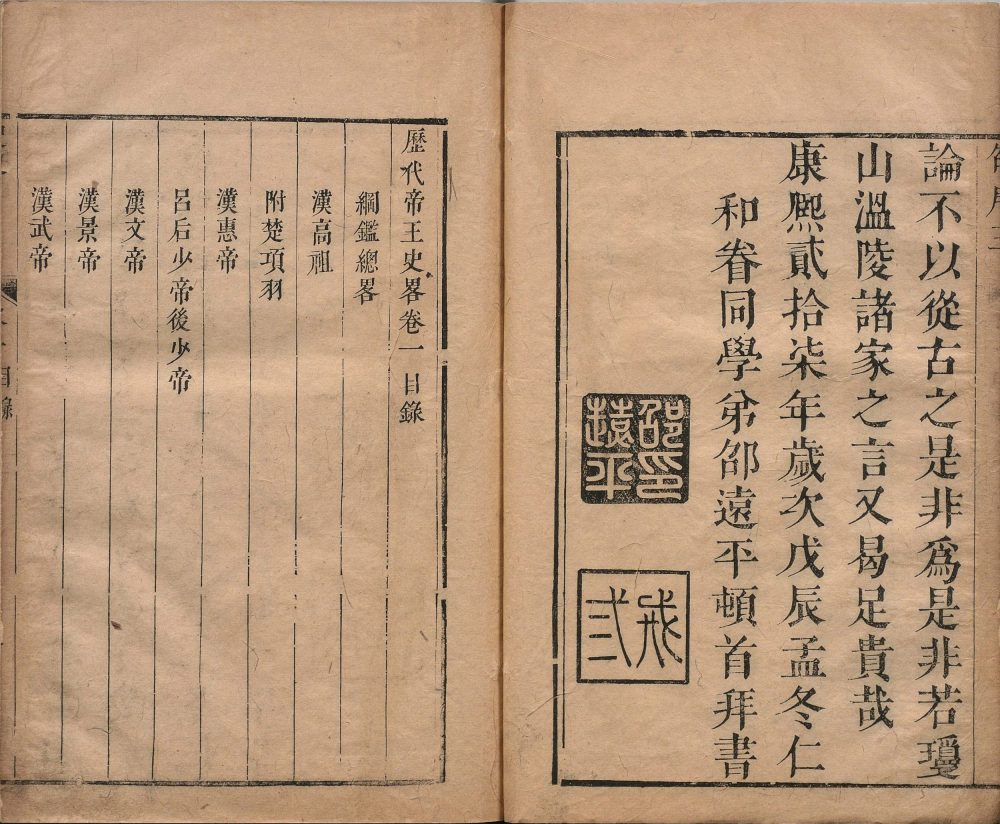 論不以從古之是非爲是非若瓊
山溫陵諸家之言又曷足貴哉
康熙貳拾柒年歲次戊辰孟冬仁
和眷同學弟邵遠平頓首拜書
邵印
遠平
戒
歷代帝王史畧卷一 目錄
綱鑑總畧
漢高祖
附楚項羽
漢惠帝
呂后少帝後少帝
漢文帝
漢景帝
漢武帝
目錄